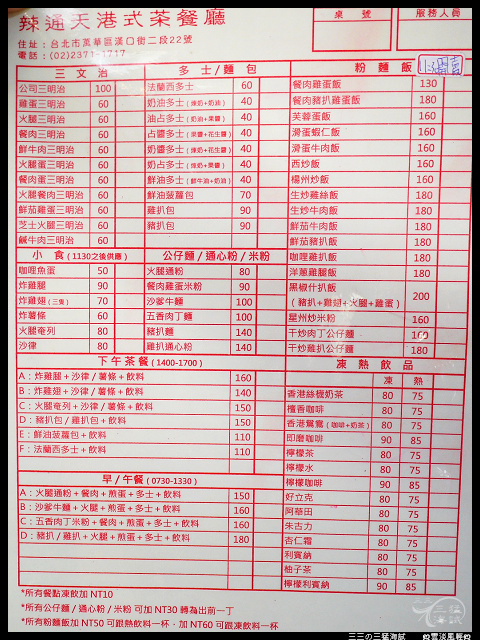 辣通天港式茶餐廳
住址：台北市萬華區漢口街二段22號
電話：(02)2371-1717
桌號
服務人員
三文治
公司三明治 100
雞蛋三明治 60
火腿三明治 60
餐肉三明治 60
鮮牛肉三明治 60
火腿蛋三明治 60
餐肉蛋三明治 60
火腿餐肉三明治 60
鮮茄雞蛋三明治 60
芝士火腿三明治 60
鹹牛肉三明治 60
多士/麵包
法蘭西多士 60
奶油多士(煉奶+奶油) 40
油占多士(奶油+果醬) 40
占醬多士(果醬+花生醬) 40
奶醬多士(煉奶+花生醬) 40
奶占多士(煉奶+果醬) 40
鮮油多士(鮮牛油+奶油) 40
鮮油菠蘿包 70
雞扒包 90
豬扒包 90
粉麵飯
餐肉雞蛋飯 130
餐肉豬扒雞蛋飯 180
芙蓉蛋飯 160
滑蛋蝦仁飯 160
滑蛋牛肉飯 160
西炒飯 160
楊州炒飯 160
生炒雞絲飯 180
生炒牛肉飯 180
鮮茄牛肉飯 180
鮮茄豬扒飯 180
咖哩雞扒飯 180
洋蔥雞腿飯 180
黑椒什扒飯
(豬扒+雞翅+火腿+雞蛋) 200
星州炒米粉 160
干炒肉丁公仔麵 160
干炒雞扒公仔麵 180
小食(1130之後供應)
咖哩魚蛋 50
炸雞腿 90
炸雞翅(三隻) 70
炸薯條 60
火腿奄列 80
沙律 80
公仔麵/通心粉/米粉
火腿通粉 80
餐肉雞蛋米粉 90
沙爹牛麵 100
五香肉丁麵 100
豬扒麵 140
雞扒通心粉 140
下午茶餐(1400-1700)
A：炸雞腿+沙律/薯條+飲料 160
B：炸雞翅+沙律/薯條+飲料 140
C：火腿奄列+沙律/薯條+飲料 150
D：豬扒包/雞扒包+飲料 150
E：鮮油菠蘿包+飲料 110
F：法蘭西多士+飲料 110
早/午餐(0730-1330)
A：火腿通粉+餐肉+煎蛋+多士+飲料 150
B：沙爹牛麵+火腿+煎蛋+多士+飲料 160
C：五香肉丁米粉+餐肉+煎蛋+多士+飲料 160
D：豬扒/雞扒+火腿+煎蛋+多士+飲料 180
凍熱飲品
凍 熱
香港絲襪奶茶 80 75
檀香咖啡 80 75
香港鴛鴦(咖啡+奶茶) 80 75
即磨咖啡 90 85
檸檬茶 80 75
檸檬水 80 75
檸檬咖啡 90 85
好立克 80 75
阿華田 80 75
朱古力 80 75
杏仁霜 80 75
利賓納 80 75
柚子茶 80 75
檸檬利賓納 90 85
*所有餐點凍飲加 NT10
*所有公仔麵/通心粉/米粉 可加 NT30 轉為出前一丁
*所有粉麵飯加 NT50 可跟熱飲料一杯‧加 NT60 可跟凍飲料一杯
三三の三猛海試